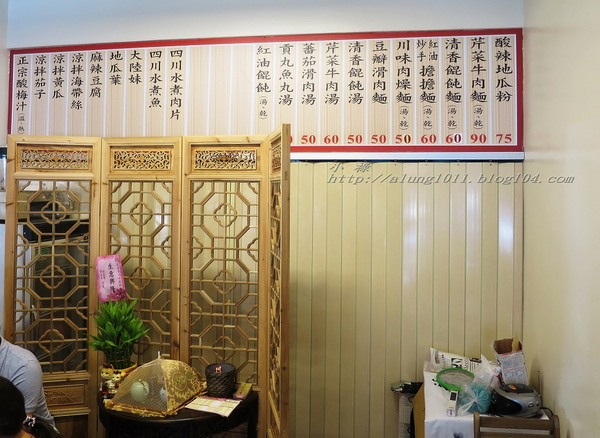 酸辣地瓜粉 75
芹菜牛肉麵(湯、乾) 90
清香餛飩麵(湯、乾) 60
紅油炒手擔擔麵(湯、乾) 60
川味肉燥麵(湯、乾) 50
豆瓣滑肉麵 50
清香餛飩湯 50
芹菜牛肉湯 60
蕃茄滑肉湯 50
貢丸魚丸湯
紅油餛飩(湯、乾)
四川水煮肉片
四川水煮魚
大陸妹
地瓜葉
麻辣豆腐
涼拌海帶絲
涼拌黃瓜
涼拌茄子
正宗酸梅汁(溫、熱)
http://alung1011.blog104.com